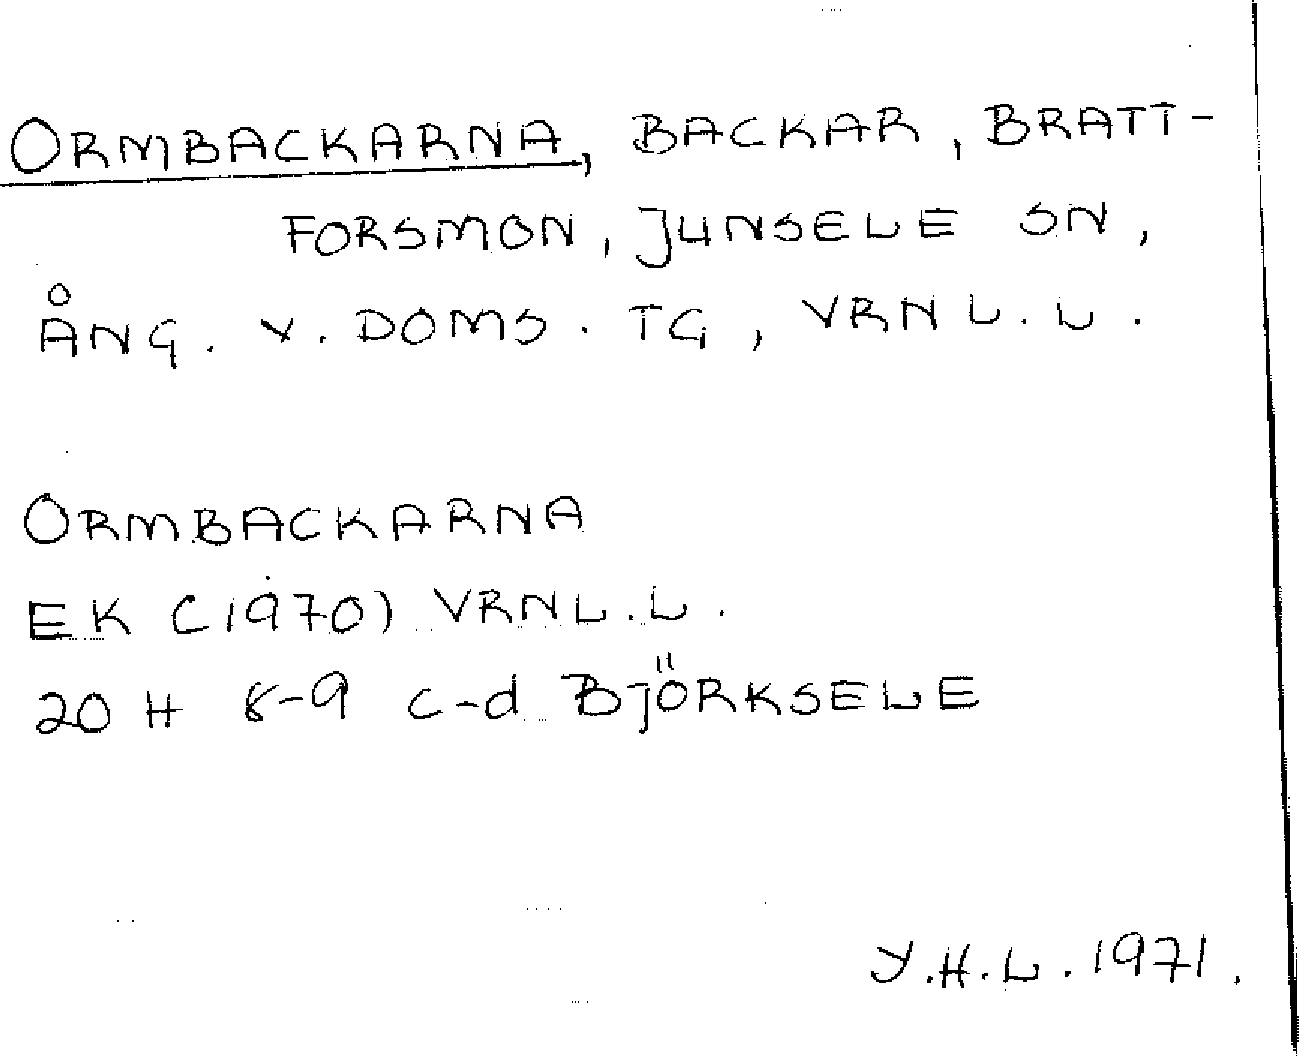 ORMBACKARNA, BACKAR, BRATT-
FORSMON, JUNSELE SN,
ÅNG. V. DOMS. TG, VRNL.L.
ORMBACKARNA
EK (1970) VRNL.L.
20 H 8-9 c-d BJÖRKSELE
Y.H.L. 1971.